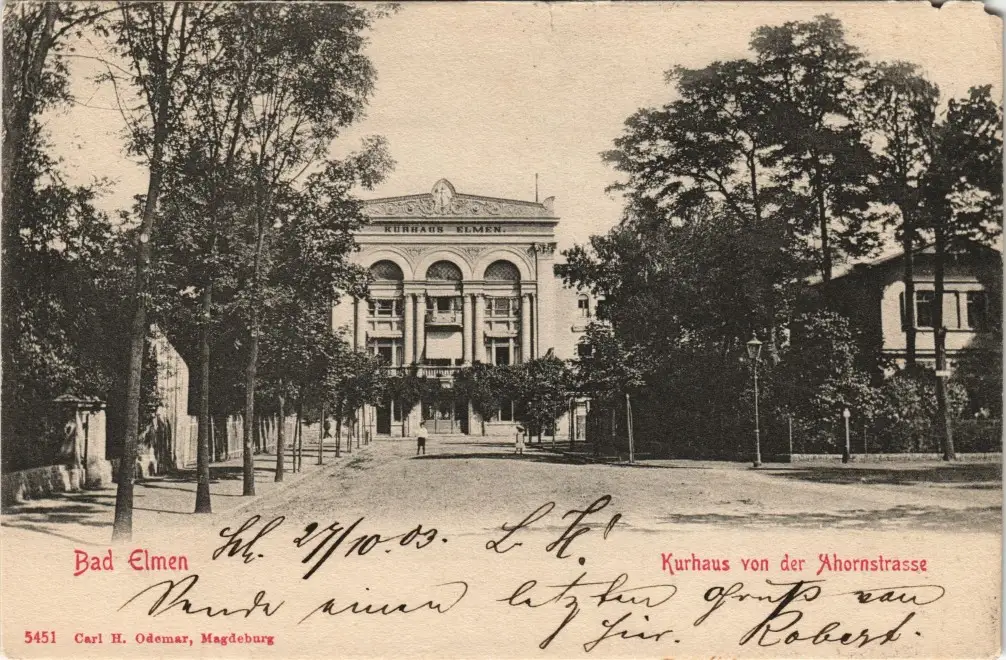 KURHAUS ELMEN.
Sch. 27/10.03. L. H.!
Bad Elmen
Kurhaus von der Ahornstrasse
Sende einen letzten Gruß von
hier. Robert.
5451 Carl H. Odemar, Magdeburg